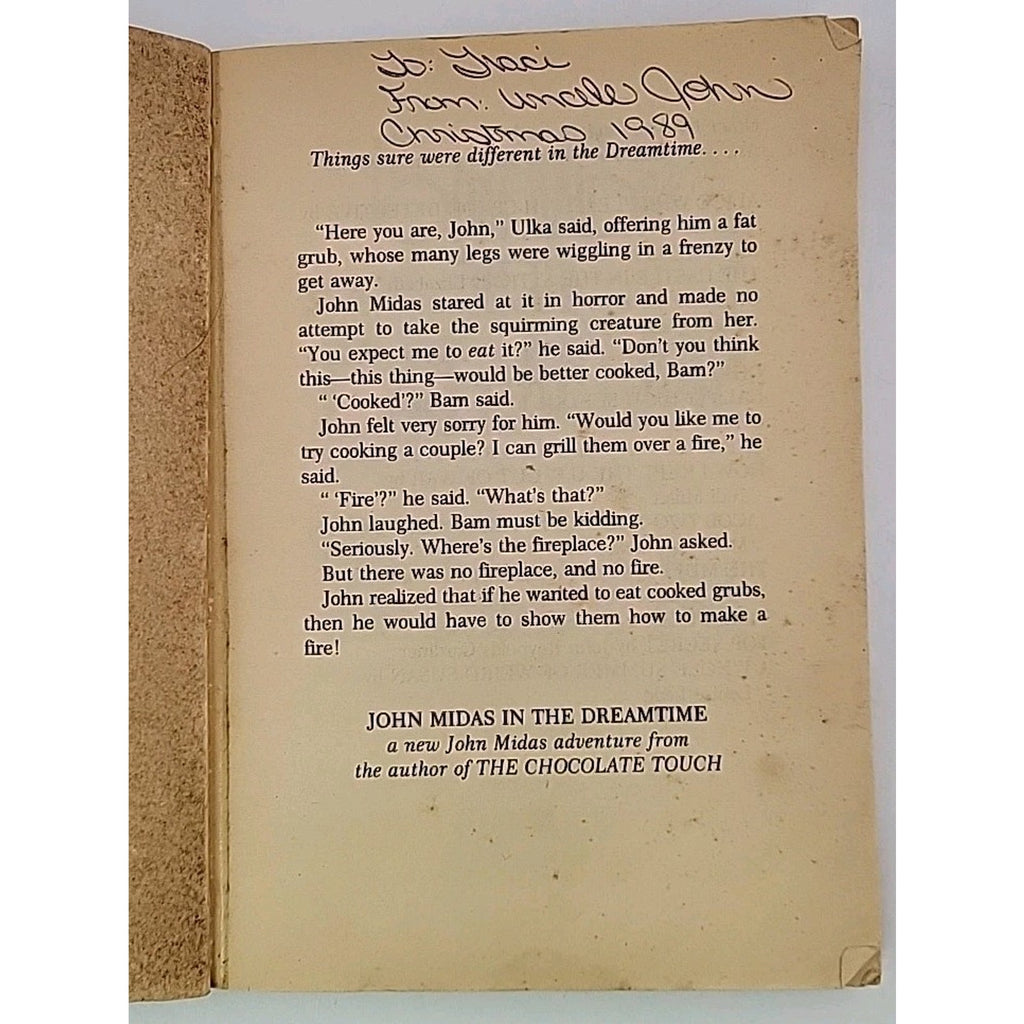 To: Traci
From: Uncle John
Christmas 1989
Things sure were different in the Dreamtime. . . .
“Here you are, John,” Ulka said, offering him a fat
grub, whose many legs were wiggling in a frenzy to
get away.
John Midas stared at it in horror and made no
attempt to take the squirming creature from her.
“You expect me to eat it?” he said. “Don’t you think
this—this thing—would be better cooked, Bam?”
“ ‘Cooked’?” Bam said.
John felt very sorry for him. “Would you like me to
try cooking a couple? I can grill them over a fire,” he
said.
“ ‘Fire’?” he said. “What’s that?”
John laughed. Bam must be kidding.
“Seriously. Where’s the fireplace?” John asked.
But there was no fireplace, and no fire.
John realized that if he wanted to eat cooked grubs,
then he would have to show them how to make a
fire!
JOHN MIDAS IN THE DREAMTIME
a new John Midas adventure from
the author of THE CHOCOLATE TOUCH